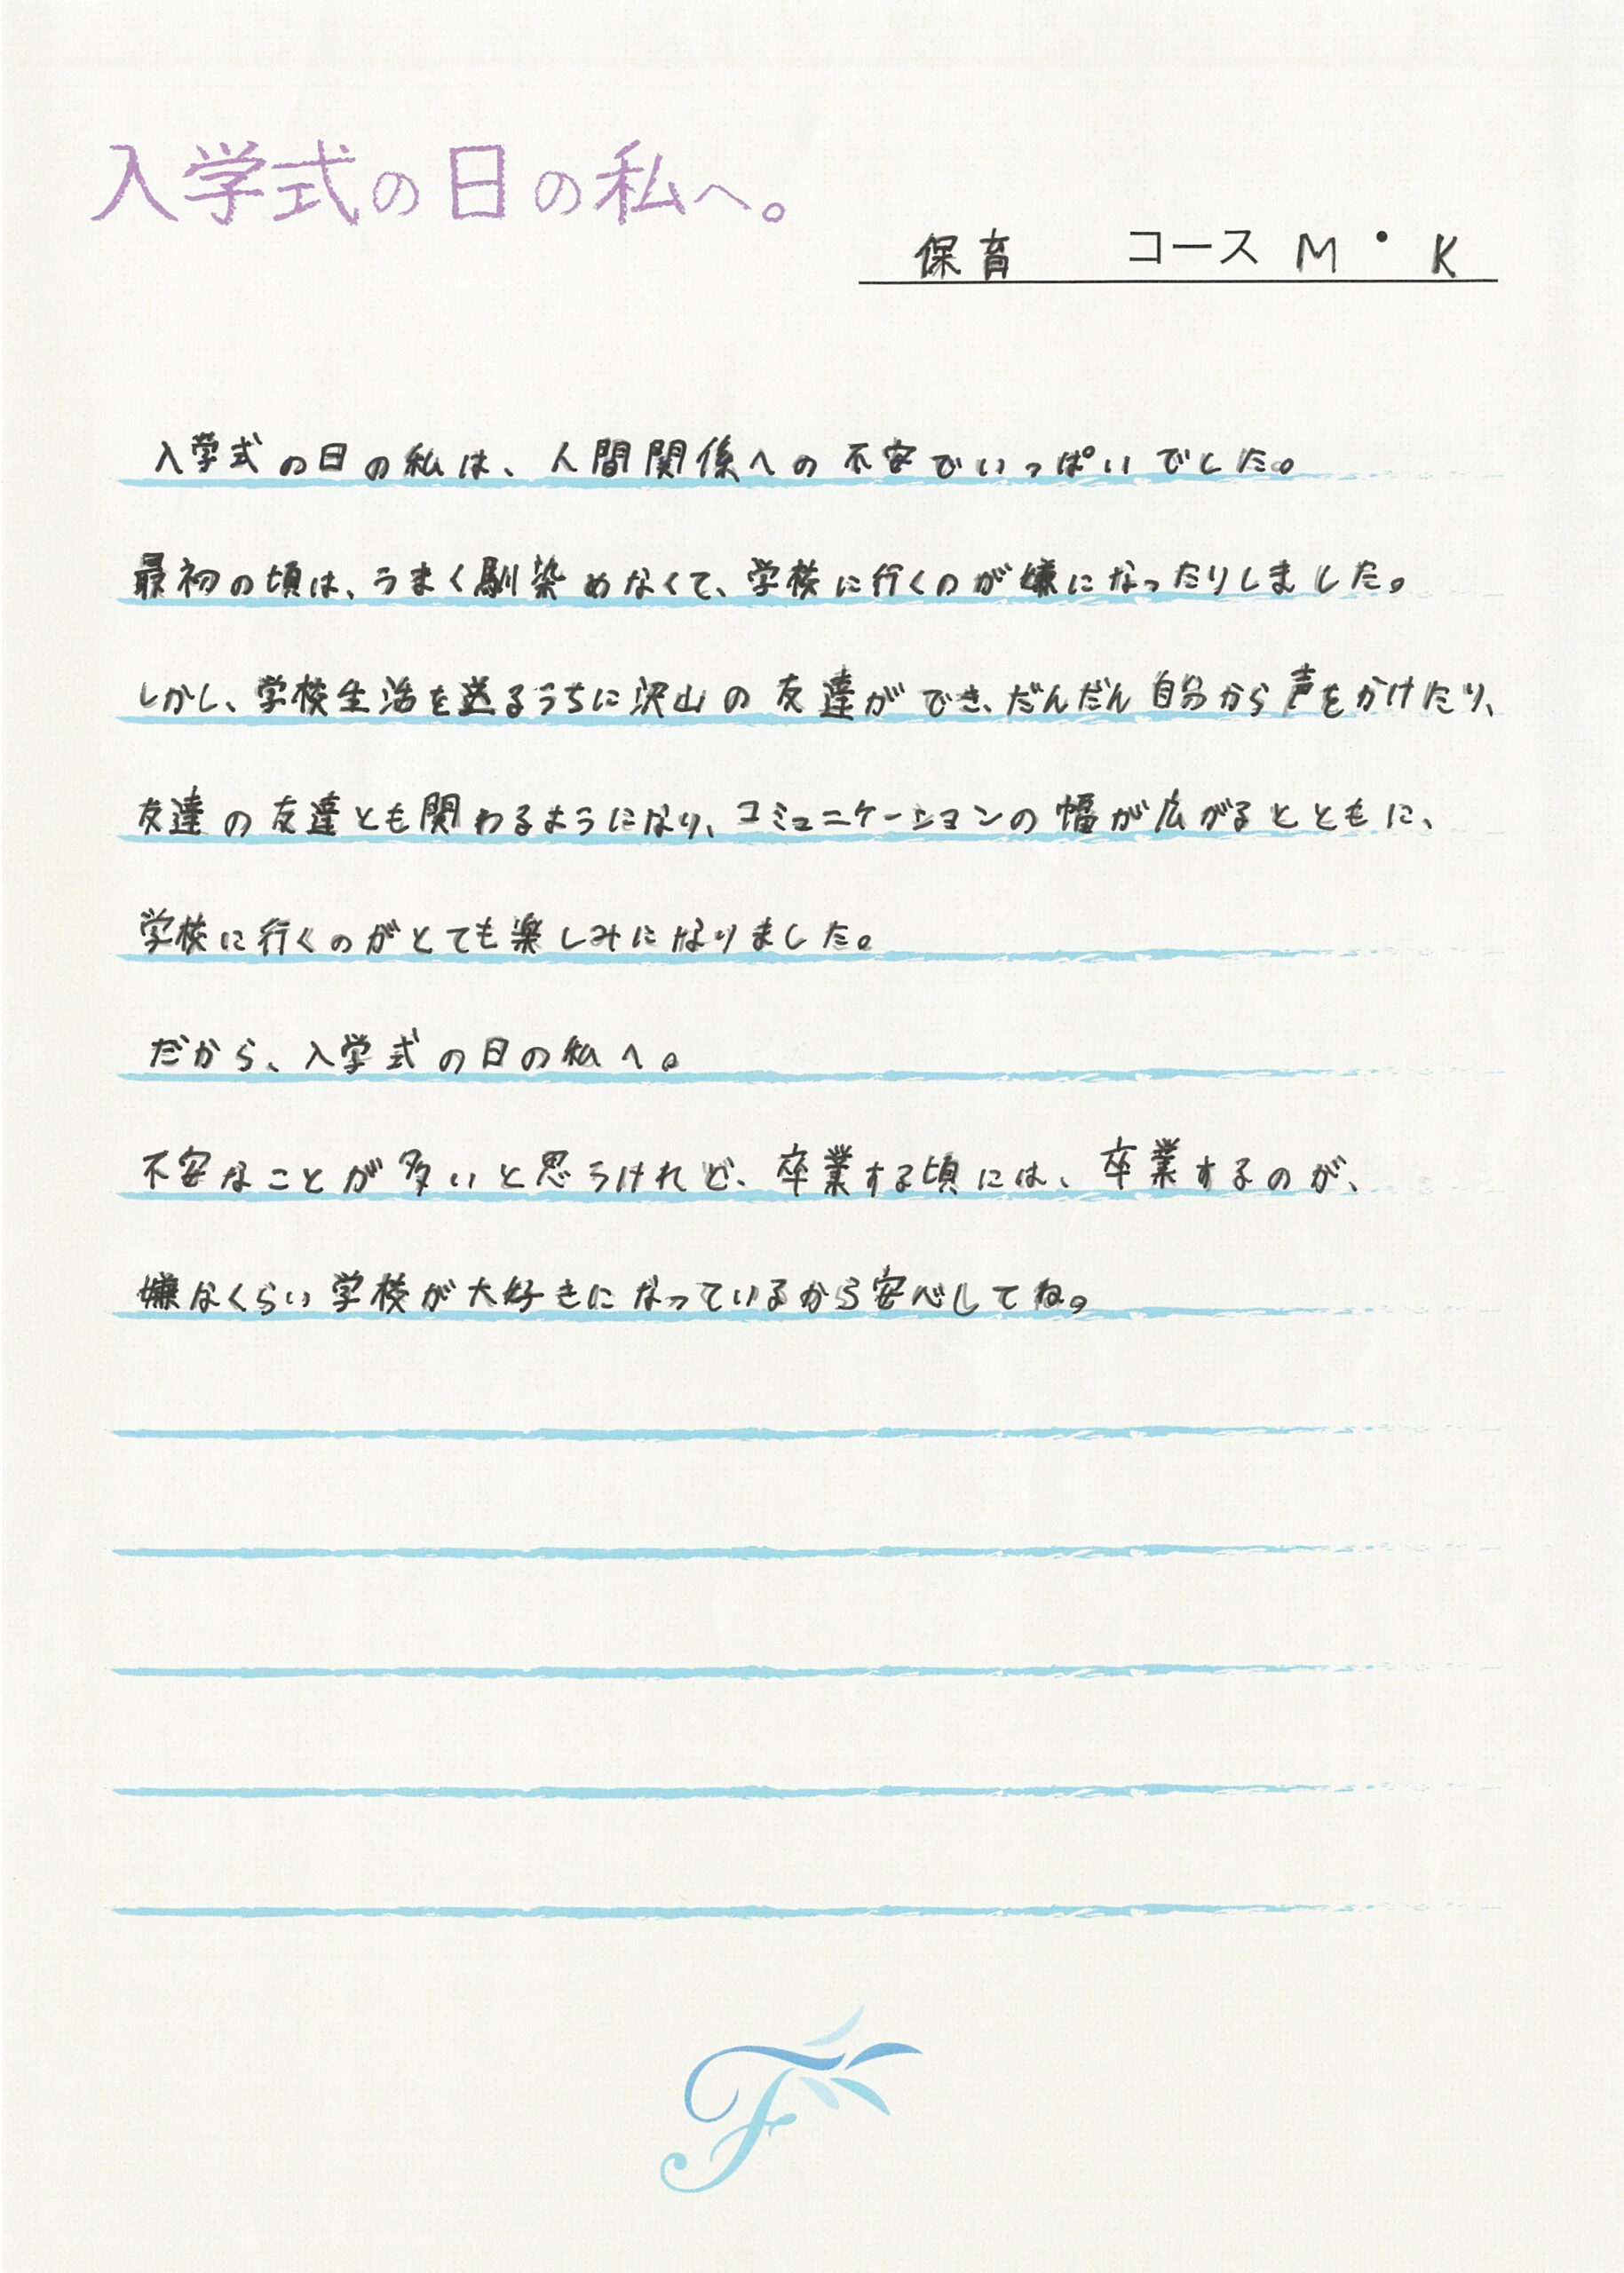 入学式の日の私へ。
保育 コース M・K
入学式の日の私は、人間関係への不安でいっぱいでした。
最初の頃は、うまく馴染めなくて、学校に行くのが嫌になったりしました。
しかし、学校生活を送るうちに沢山の友達ができ、だんだん自分から声をかけたり、
友達の友達とも関わるようになり、コミュニケーションの幅が広がるとともに、
学校に行くのがとても楽しみになりました。
だから、入学式の日の私へ。
不安なことが多いと思うけれど、卒業する頃には、卒業するのが、
嫌なくらい学校が大好きになっているから安心してね。
F